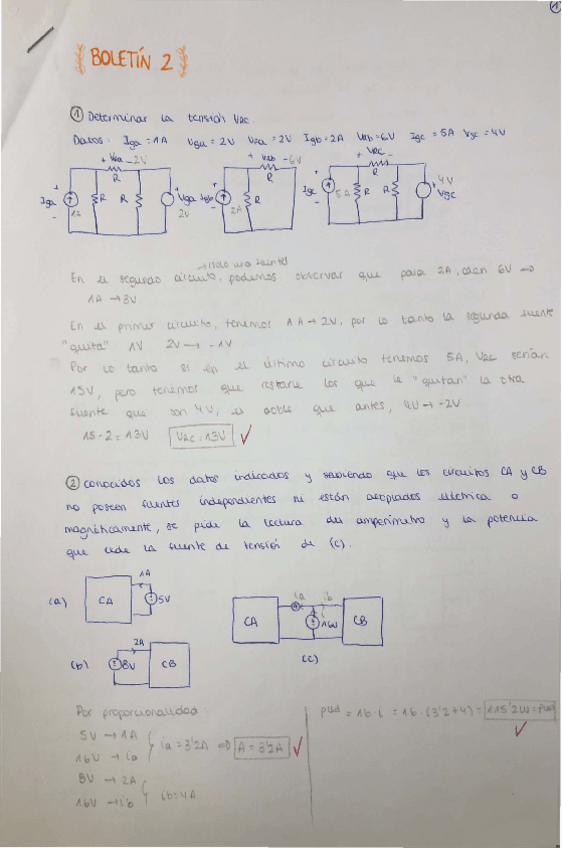 1
BOLETÍN 2
① Determinar la tensión VRC.
Datos: Iga = 1A Vga = 2V VRa = 2V Igb = 2A VRb = 6V Igc = 5A Vgc = 4V
+ VRa - 2V
R
Iga
+
-
1A
R
R
Vga
2V
+ VRb - 6V
R
Igb
2A
R
+ VRC -
R
Igc
+
-
5A
R
R
4V
Vgc
→ (solo una fuente)
En el segundo circuito, podemos observar que para 2A, caen 6V ⇒
1A → 3V
En el primer circuito, tenemos 1A → 2V, por lo tanto la segunda fuente
"quita" 1V 2V → -1V
Por lo tanto si en el último circuito tenemos 5A, VRC serían
15V, pero tenemos que restarle los que le "quitan" la otra
fuente que son 4V, el doble que antes, 4V → -2V
15 - 2 = 13V VRC = 13V ✓
② Conocidos los datos indicados y sabiendo que los circuitos CA y CB
no poseen fuentes independientes ni están acoplados eléctrica o
magnéticamente, se pide la lectura del amperímetro y la potencia
que cede la fuente de tensión de (c).
(a)
CA
1A
5V
(b)
8V
2A
CB
CA
ia
ib
i
16V
CB
(c)
Por proporcionalidad:
5V → 1A
16V → ia
ia = 3'2A ⇒ A = 3'2A ✓
8V → 2A
16V → ib
ib = 4A
= 16 · i = 16 · (3'2 + 4) = 115'2W ✓